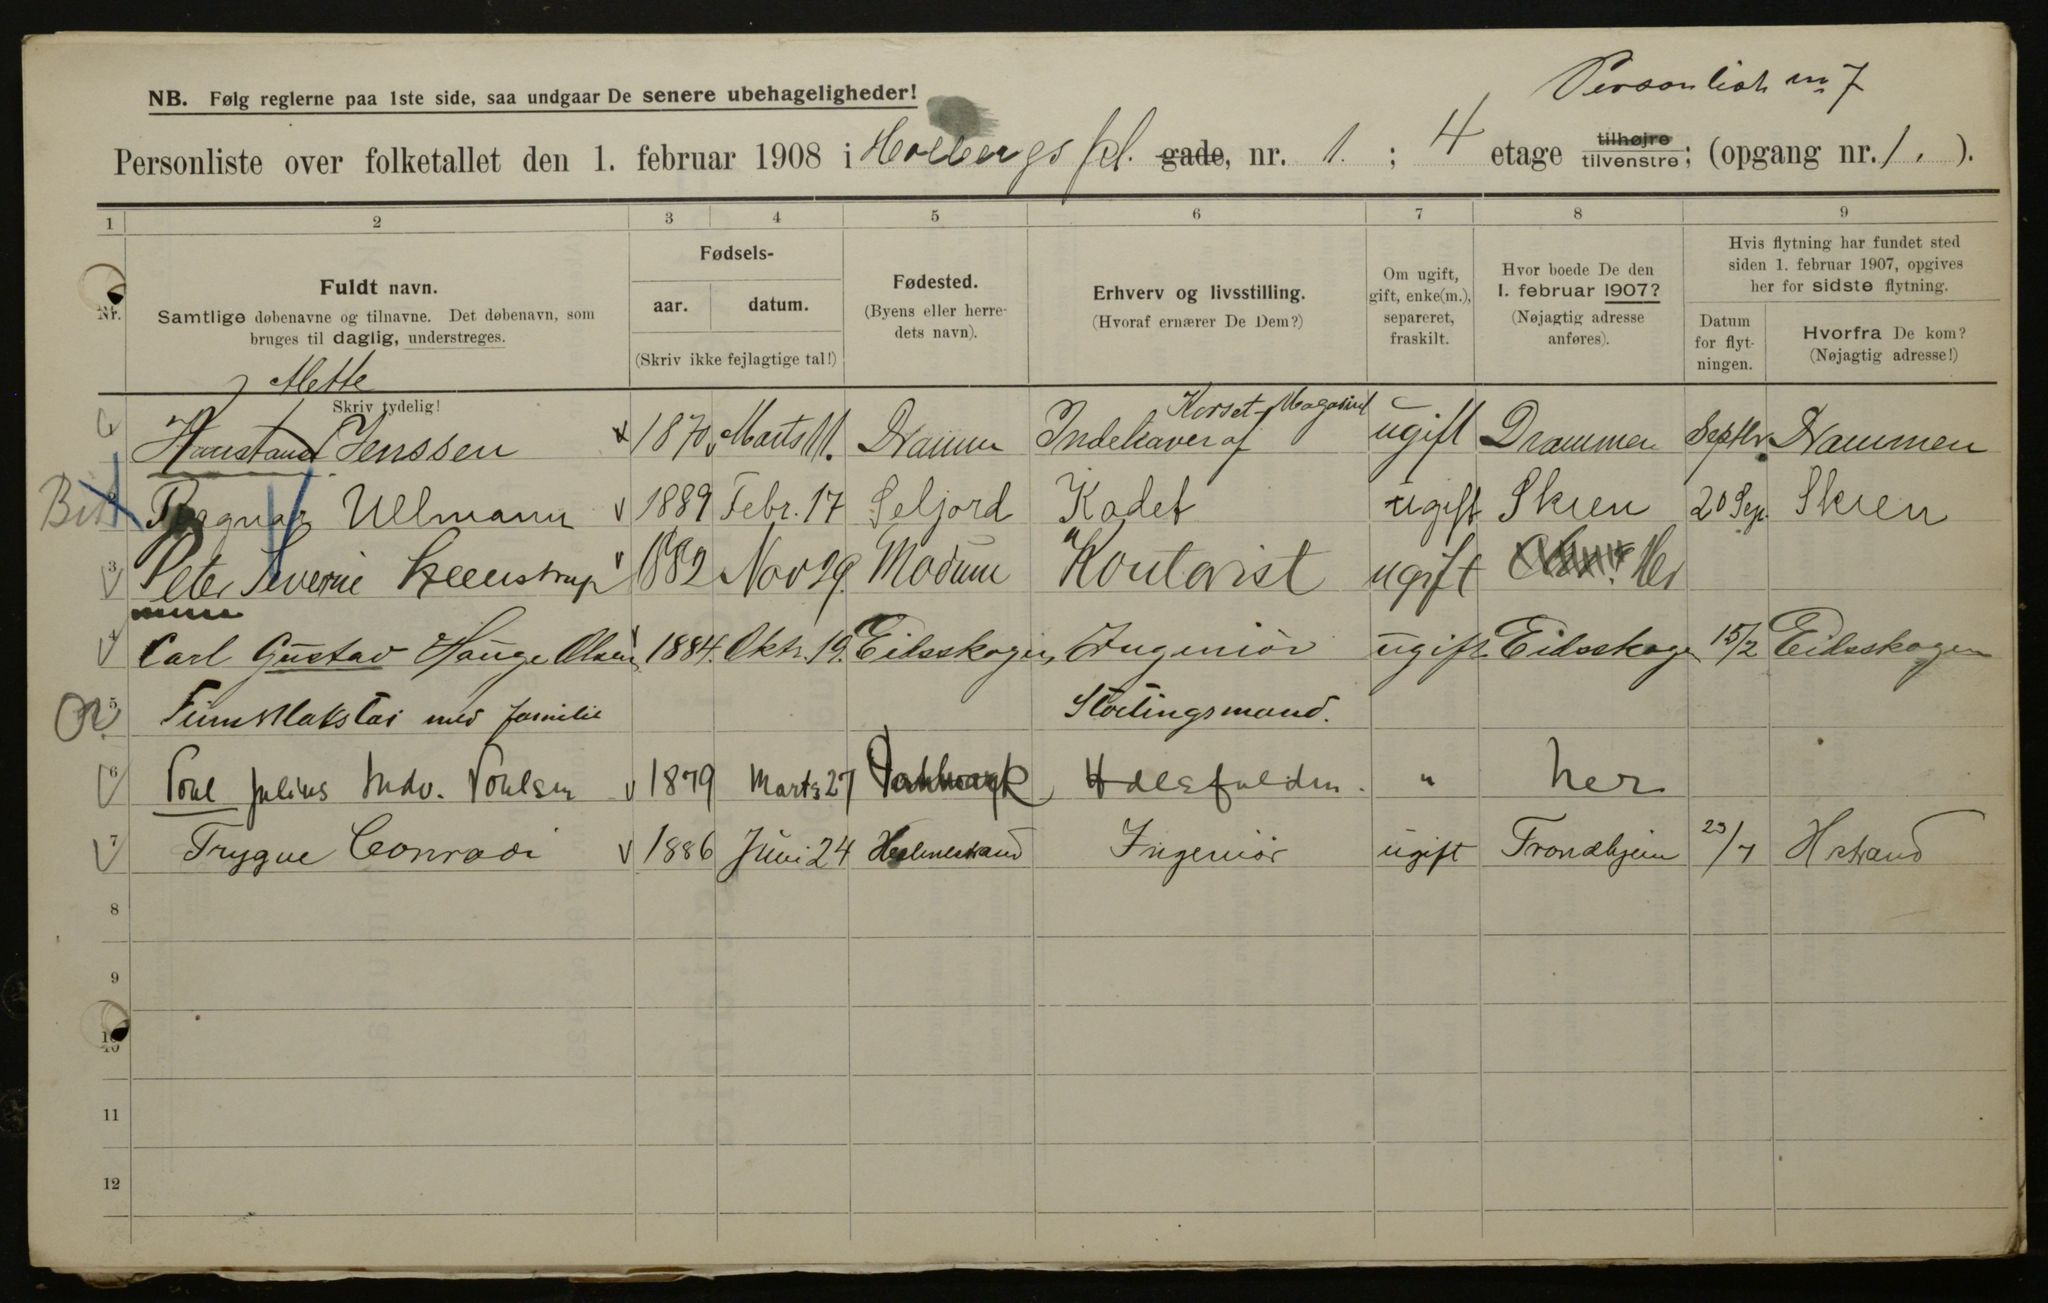 Personlist nr 7
NB. Følg reglerne paa 1ste side, saa undgaar De senere ubehageligheder!
Personliste over folketallet den 1. februar 1908 i Holbergs pl. gade, nr. 1. ; 4 etage tilhøjre tilvenstre; (opgang nr. 1. ).
1 2 3 4 5 6 7 8 9
Nr.
Fuldt navn.
Samtlige døbenavne og tilnavne. Det døbenavn, som
bruges til daglig, understreges.
Skriv tydelig!
Fødsels-
aar. datum.
(Skriv ikke fejlagtige tal!)
Fødested.
(Byens eller herre-
dets navn).
Erhverv og livsstilling.
(Hvoraf ernærer De Dem?)
Om ugift,
gift, enke(m.),
separeret,
fraskilt.
Hvor boede De den
1. februar 1907?
(Nøjagtig adresse
anføres).
Hvis flytning har fundet sted
siden 1. februar 1907, opgives
her for sidste flytning.
Datum
for flyt-
ningen.
Hvorfra De kom?
(Nøjagtig adresse!)
Mette
Korset-Magasinet
Jenssen 1870 Marts 11. Dramm Indehaver af ugift Drammen Septbr Drammen
Bit 2 Ragnar Ullmann 1889 Febr. 17 Seljord Kadet ugift Skien 20 Sep. Skien
3 Peter Severin Steenstrup 1882 Nov 29. Modum Kontorist ugift Her
4 Carl Gustav Hauge Olsen 1884. Oktr. 19. Eidsskogen Ingeniør ugift Eidsskogen 15/2 Eidsskogen
5 med familie Stortingsmand.
6 Poul Julius Ludv. Poulsen 1879 Marts 27 " her
7 Trygve Conradi 1886 Juni 24 Holmestrand Ingeniør ugift Trondhjem 23/7 Hstrand
8
9
10
11
12